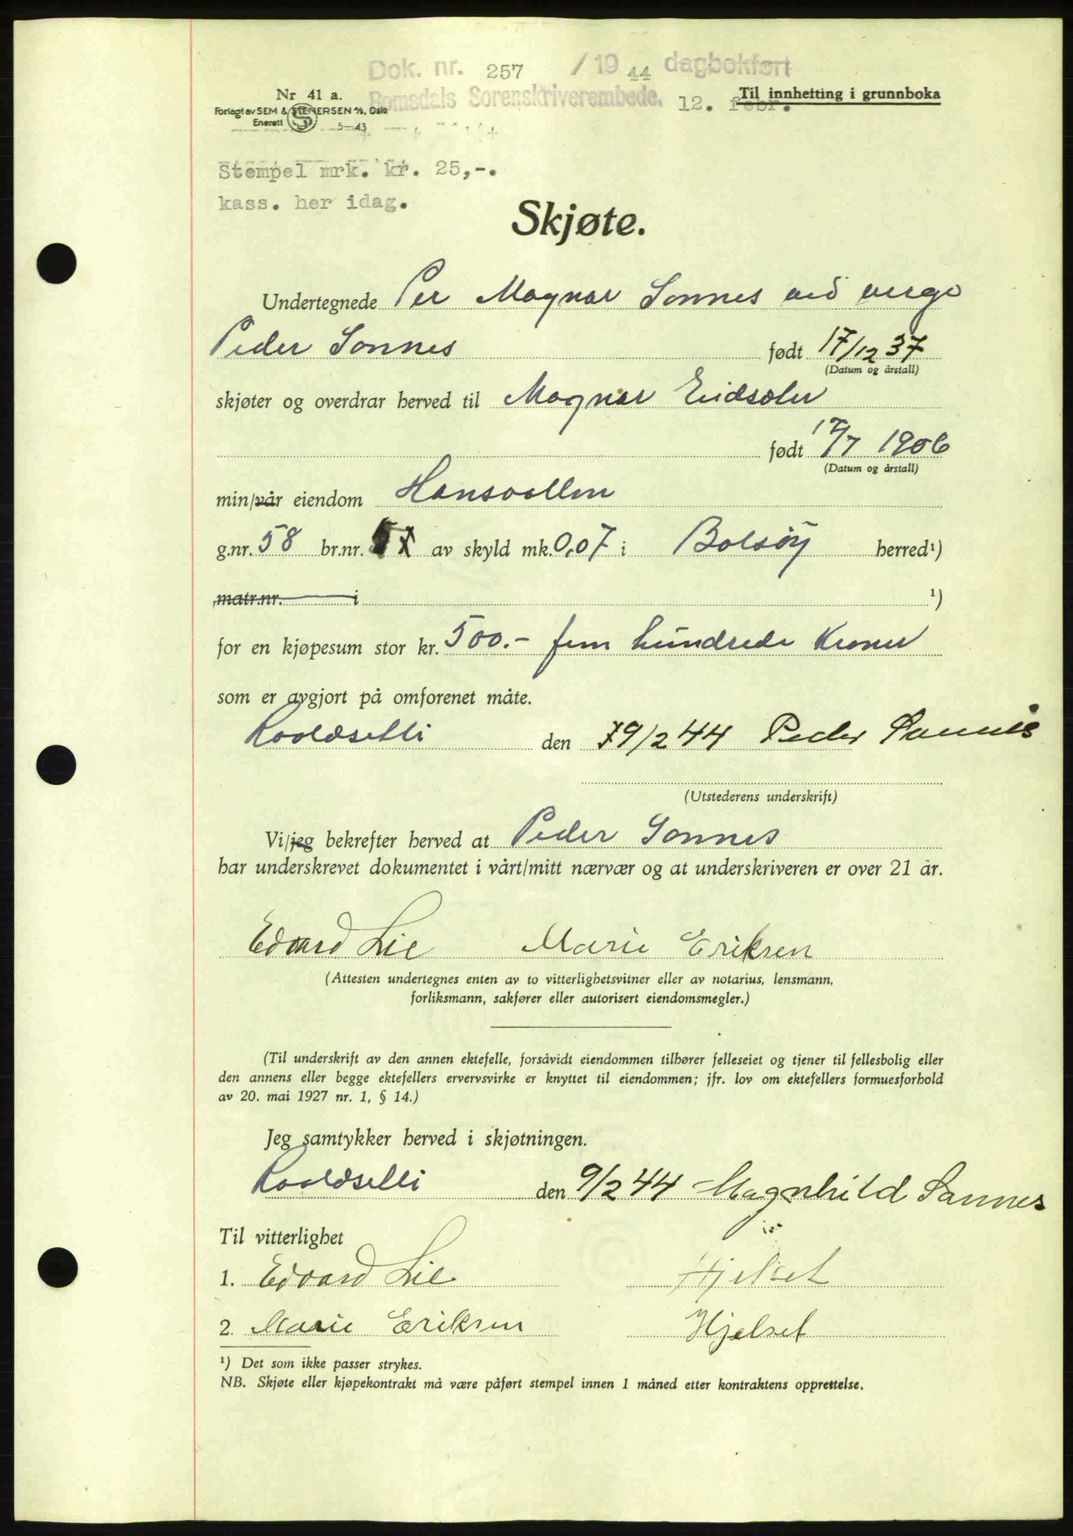 Dok. nr. 257 / 1944 dagbokført
Romsdals Sorenskriverembede. 12. febr.
Til innhefting i grunnboka
Nr 41 a.
Forlagt av SEM & STENERSEN A/S, Oslo
Enerett S 5—43
Stempel mrk. kr. 25,-.
kass. her idag.
Skjøte.
Undertegnede Per Magnar Sonnes ved verge
Peder Sonnes født 17/12 37
(Datum og årstall)
skjøter og overdrar herved til Magnar Eidsæter
født 17/7 1906
(Datum og årstall)
min/vår eiendom Hansvollen
g.nr. 58 br.nr. av skyld mk. 0,07 i Bolsøy herred¹)
matr.nr. i ¹)
for en kjøpesum stor kr. 500.- fem hundrede Kroner
som er avgjort på omforenet måte.
den 9/2 44 Peder Sonnes
(Utstederens underskrift)
Vi/jeg bekrefter herved at Peder Sonnes
har underskrevet dokumentet i vårt/mitt nærvær og at underskriveren er over 21 år.
Edvard Lie Marie Eriksen
(Attesten undertegnes enten av to vitterlighetsvitner eller av notarius, lensmann,
forliksmann, sakfører eller autorisert eiendomsmegler.)
(Til underskrift av den annen ektefelle, forsåvidt eiendommen tilhører felleseiet og tjener til fellesbolig eller
den annens eller begge ektefellers ervervsvirke er knyttet til eiendommen; jfr. lov om ektefellers formuesforhold
av 20. mai 1927 nr. 1, § 14.)
Jeg samtykker herved i skjøtningen.
den 9/2 44 Magnhild Sannes
Til vitterlighet
1. Edvard Lie Hjelset
2. Marie Eriksen Hjelset
¹) Det som ikke passer strykes.
NB. Skjøte eller kjøpekontrakt må være påført stempel innen 1 måned etter kontraktens opprettelse.